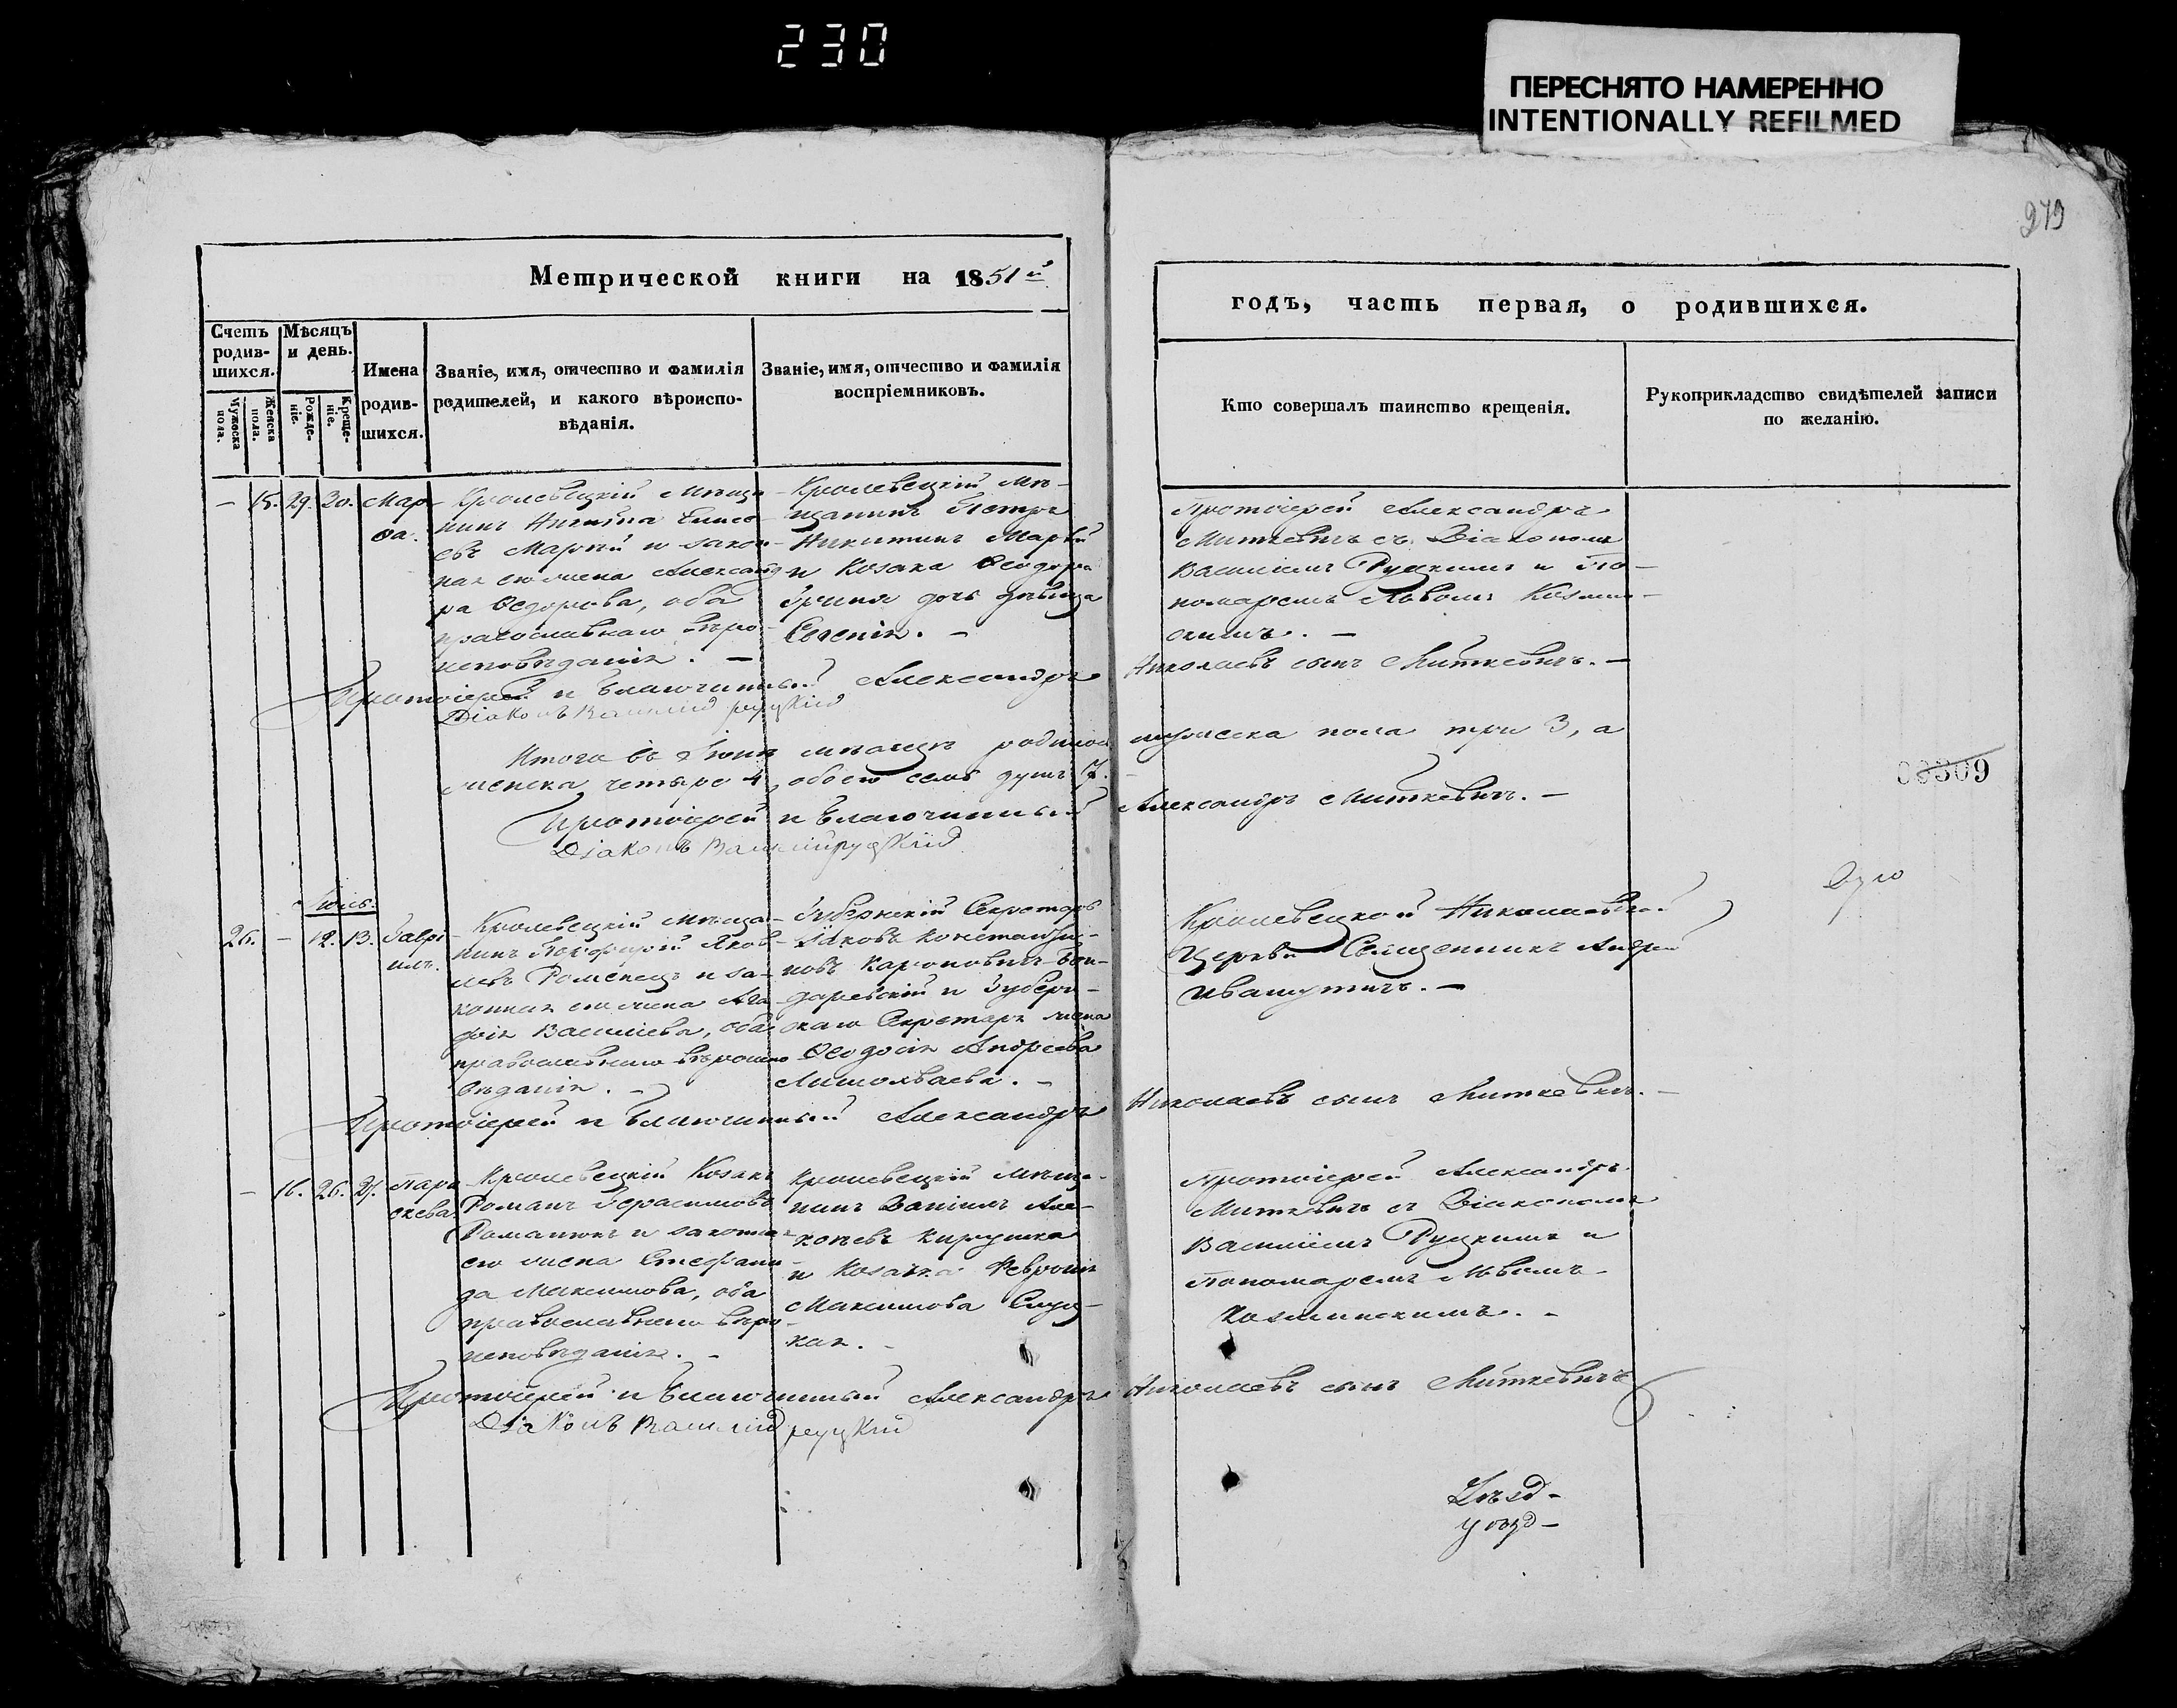 230
ПЕРЕСНЯТО НАМЕРЕННО
INTENTIONALLY REFILMED
279
Метрической книги на 1851й
годъ, часть первая, о родившихся.
Счетъ родившихся.
Мужеска пола.
Женска пола.
Мѣсяцъ и день.
Рожденіе.
Крещеніе.
Имена родившихся.
Званіе, имя, отчество и фамилія
родителей, и какого вѣроиспо-
вѣданія.
Званіе, имя, отчество и фамилія
воспріемниковъ.
Кто совершалъ таинство крещенія.
Рукоприкладство свидѣтелей записи
по желанію.
— 15. 29. 30. Мар-
ѳа.
Кролевецкій мѣща-
нинъ Никита Елисе-
евъ Марпій и закон-
ная его жена Александ-
ра Ѳедорова, оба
православнаго вѣро-
исповѣданія. —
Кролевецкій мѣ-
щанинъ Петръ
Никитинъ Марпій
и Козака Ѳеодора
дочь дѣвица
Евгенія. —
Протоіерей Александръ
Миткевичъ съ Діакономъ
Василіемъ Руцкимъ и По-
номаремъ Львомъ Козмин-
скимъ. —
Протоіерей и Благочинный Александръ Николаевъ сынъ Миткевичъ. —
Діаконъ Василій Руцкій
Итого въ Іюнѣ мѣсяцѣ родилось мужеска пола три 3, а
женска четыре 4, обоего семь душъ 7. —
Протоіерей и Благочинный Александръ Миткевичъ. —
Діаконъ Василій Руцкій
00309
Іюль.
26. — 12. 13. Гаврі-
илъ.
Кролевецкій мѣща-
нинъ Порфирій Яков-
левъ Роменецъ и за-
конная его жена Ага-
фія Василіева, оба
православнаго вѣроиспо-
вѣданія. —
Губернскій Секретарь
Іаковъ Константи-
новъ Карповичъ-Бон-
даревскій и Губерн-
скаго Секретаря жена
Ѳеодосія Андреева
Кролевецкой Николаевской
Церкви Священникъ Андрей
Ивашутичъ. —
Протоіерей и Благочинный Александръ Николаевъ сынъ Миткевичъ. —
— 16. 26. 27. Пара-
скева.
Кролевецкій Козакъ
Романъ Герасимовъ
Романюкъ и законная
его жена Стефани-
да Максимова, оба
православнаго вѣро-
исповѣданія. —
Кролевецкій мѣща-
нинъ Даніилъ
Кирушка
и Козачка Февронія
Максимова Слуц-
кая. —
Протоіерей Александръ
Миткевичъ съ Діакономъ
Василіемъ Руцкимъ и
Пономаремъ Львомъ
Козминскимъ. —
Протоіерей и Благочинный Александръ Николаевъ сынъ Миткевичъ
Діаконъ Василій Руцкій